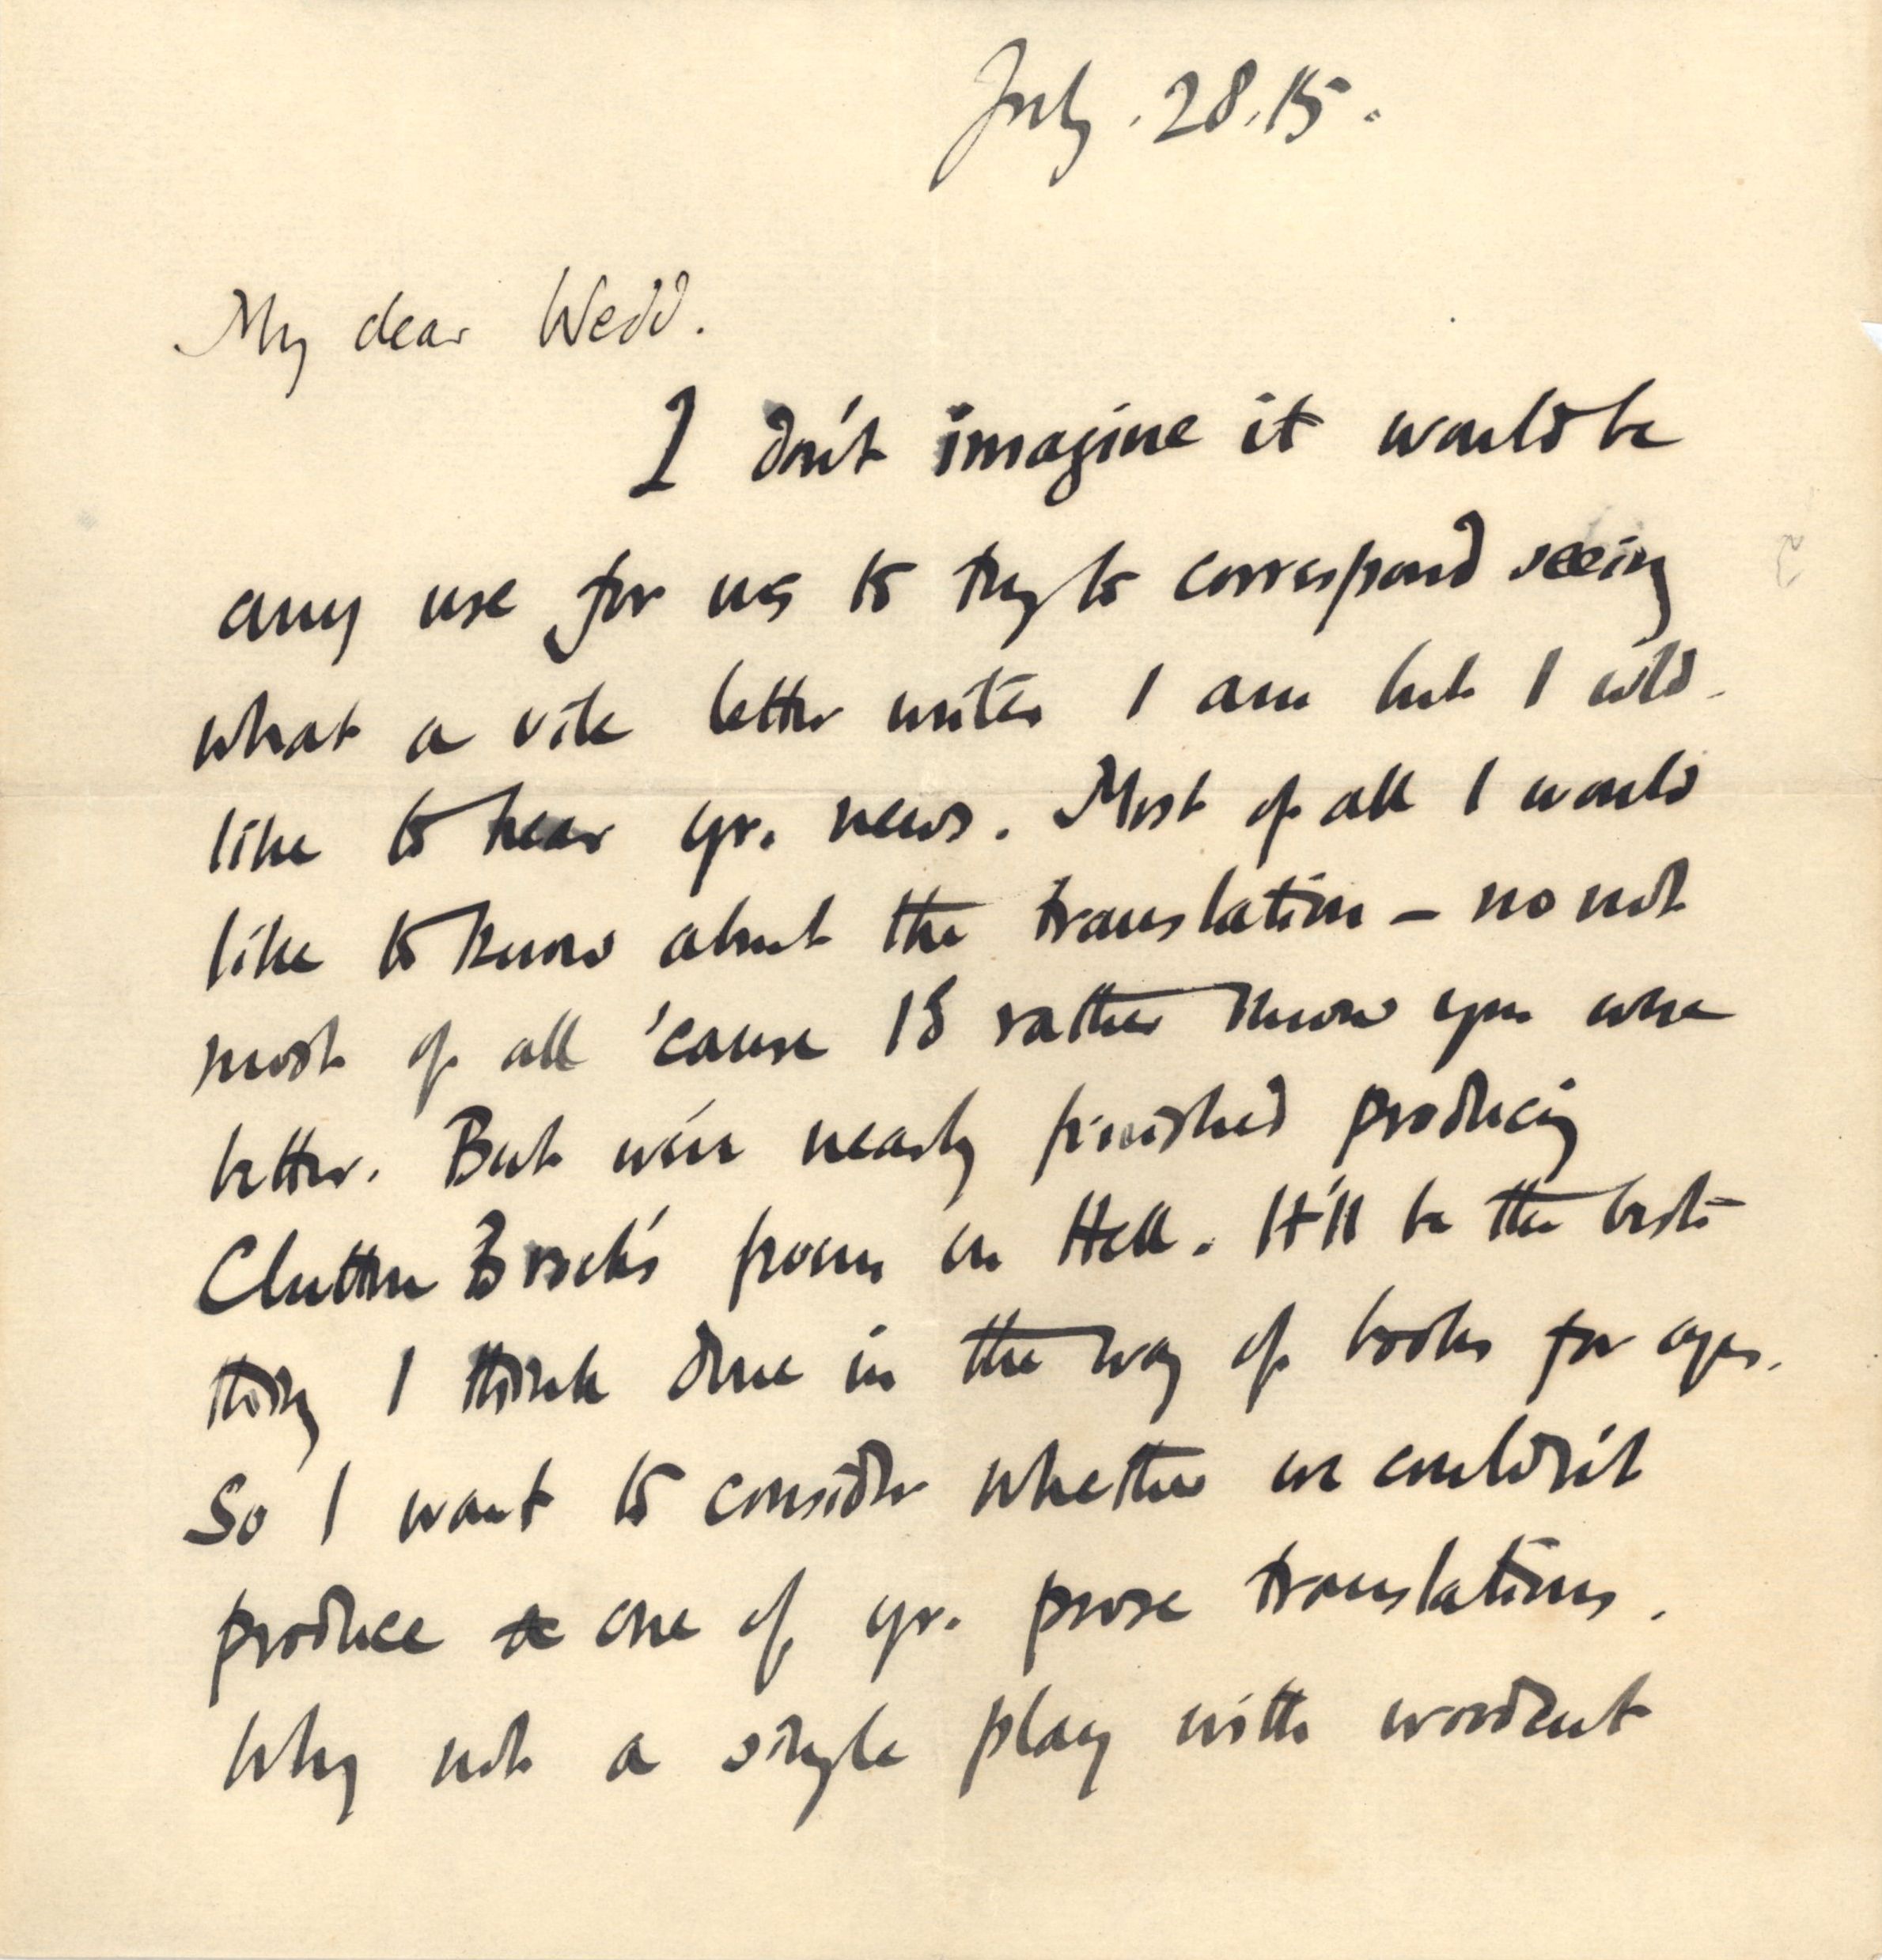 July . 28 . 15 .
My dear Wedd .
I don't imagine it would be
any use for us to try to correspond seeing
what a vile letter writer I am but I wld.
like to hear yr. news . Most of all I would
like to know about the translation – no not
most of all 'cause I'd rather know you were
better . But we're nearly finished producing
Clutton Brock's poem on Hell . It'll be the best
thing I think done in the way of books for ages .
So I want to consider whether we couldn't
produce one of yr. prose translations .
Why not a single play with woodcut